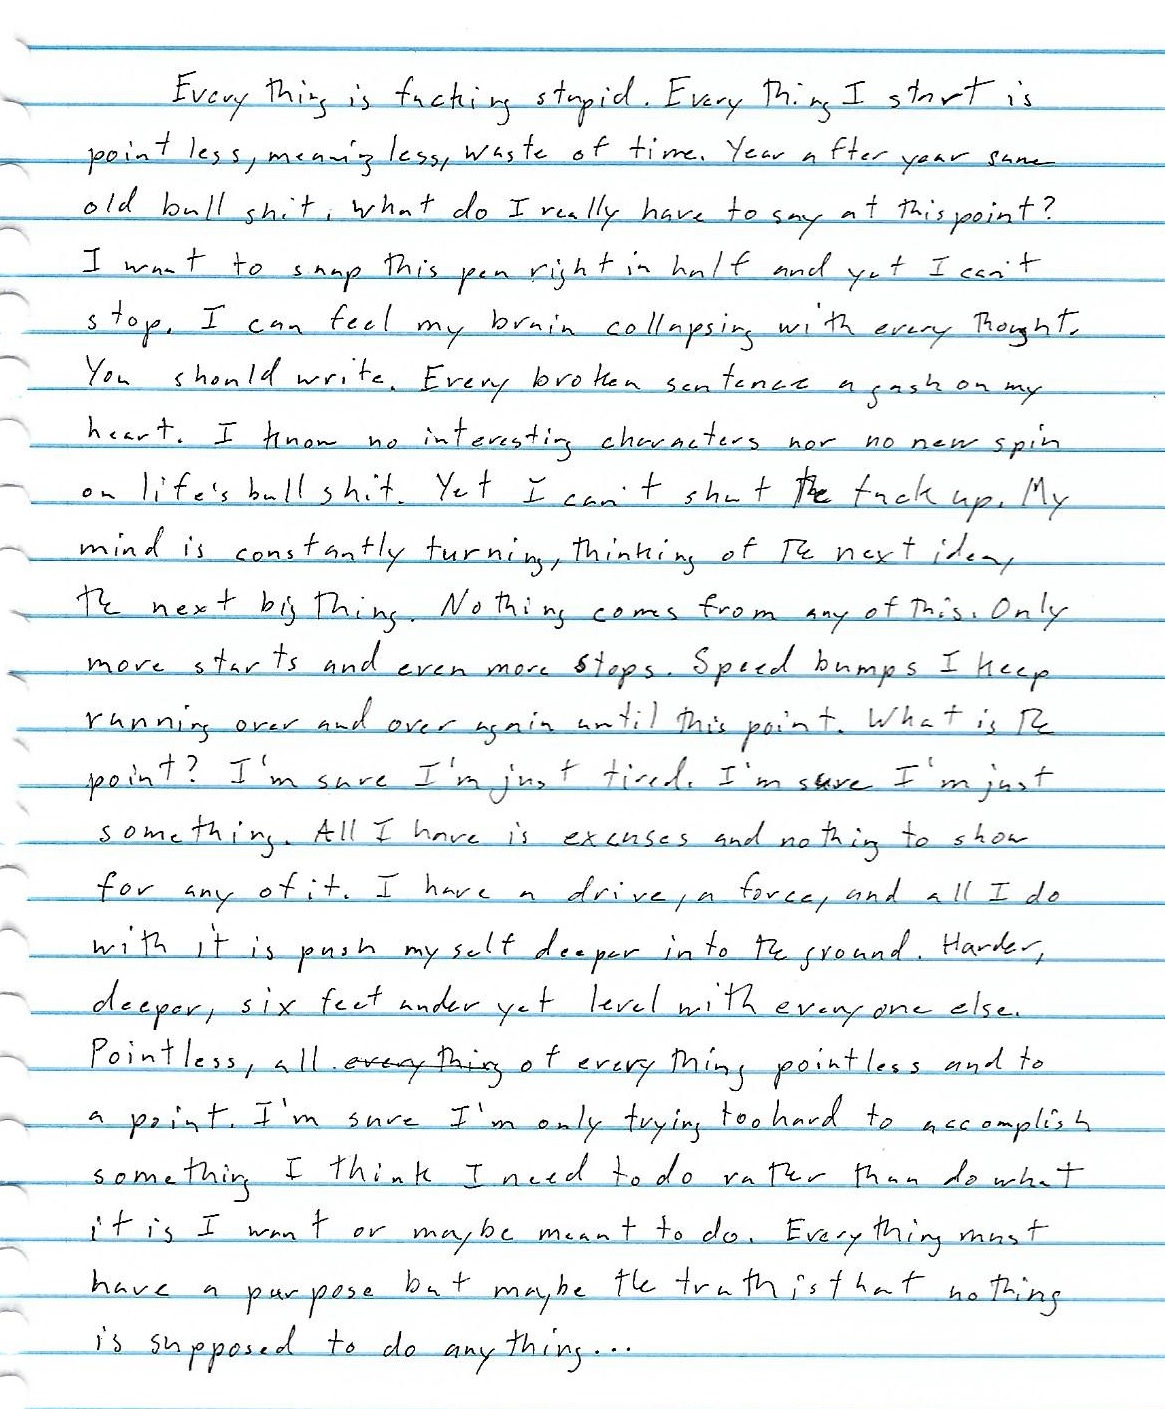 Every thing is fucking stupid. Every thing I start is
pointless, meaningless, waste of time. Year after year same
old bull shit, what do I really have to say at this point?
I want to snap this pen right in half and yet I can't
stop. I can feel my brain collapsing with every thought.
You should write. Every broken sentence a gash on my
heart. I know no interesting characters nor no new spin
on life's bull shit. Yet I can't shut the fuck up. My
mind is constantly turning, thinking of the next idea,
the next big thing. Nothing comes from any of this. Only
more starts and even more stops. Speed bumps I keep
running over and over again until this point. What is the
point? I'm sure I'm just tired. I'm sure I'm just
something. All I have is excuses and nothing to show
for any of it. I have a drive, a force, and all I do
with it is push my self deeper into the ground. Harder,
deeper, six feet under yet level with everyone else.
Pointless, all every thing of every thing pointless and to
a point. I'm sure I'm only trying too hard to accomplish
something I think I need to do rather than do what
it is I want or maybe meant to do. Everything must
have a purpose but maybe the truth is that nothing
is supposed to do any thing...